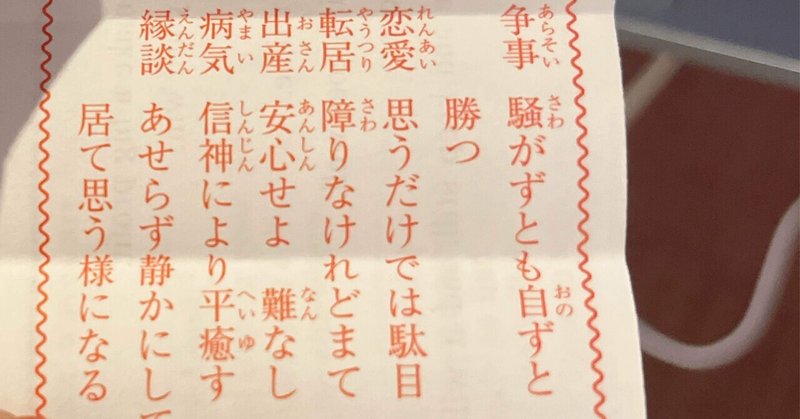 争事 騒がずとも自ずと
勝つ
恋愛 思うだけでは駄目
転居 障りなけれどまて
出産 安心せよ 難なし
病気 信神により平癒す
縁談 あせらず静かにして
居て思う様になる